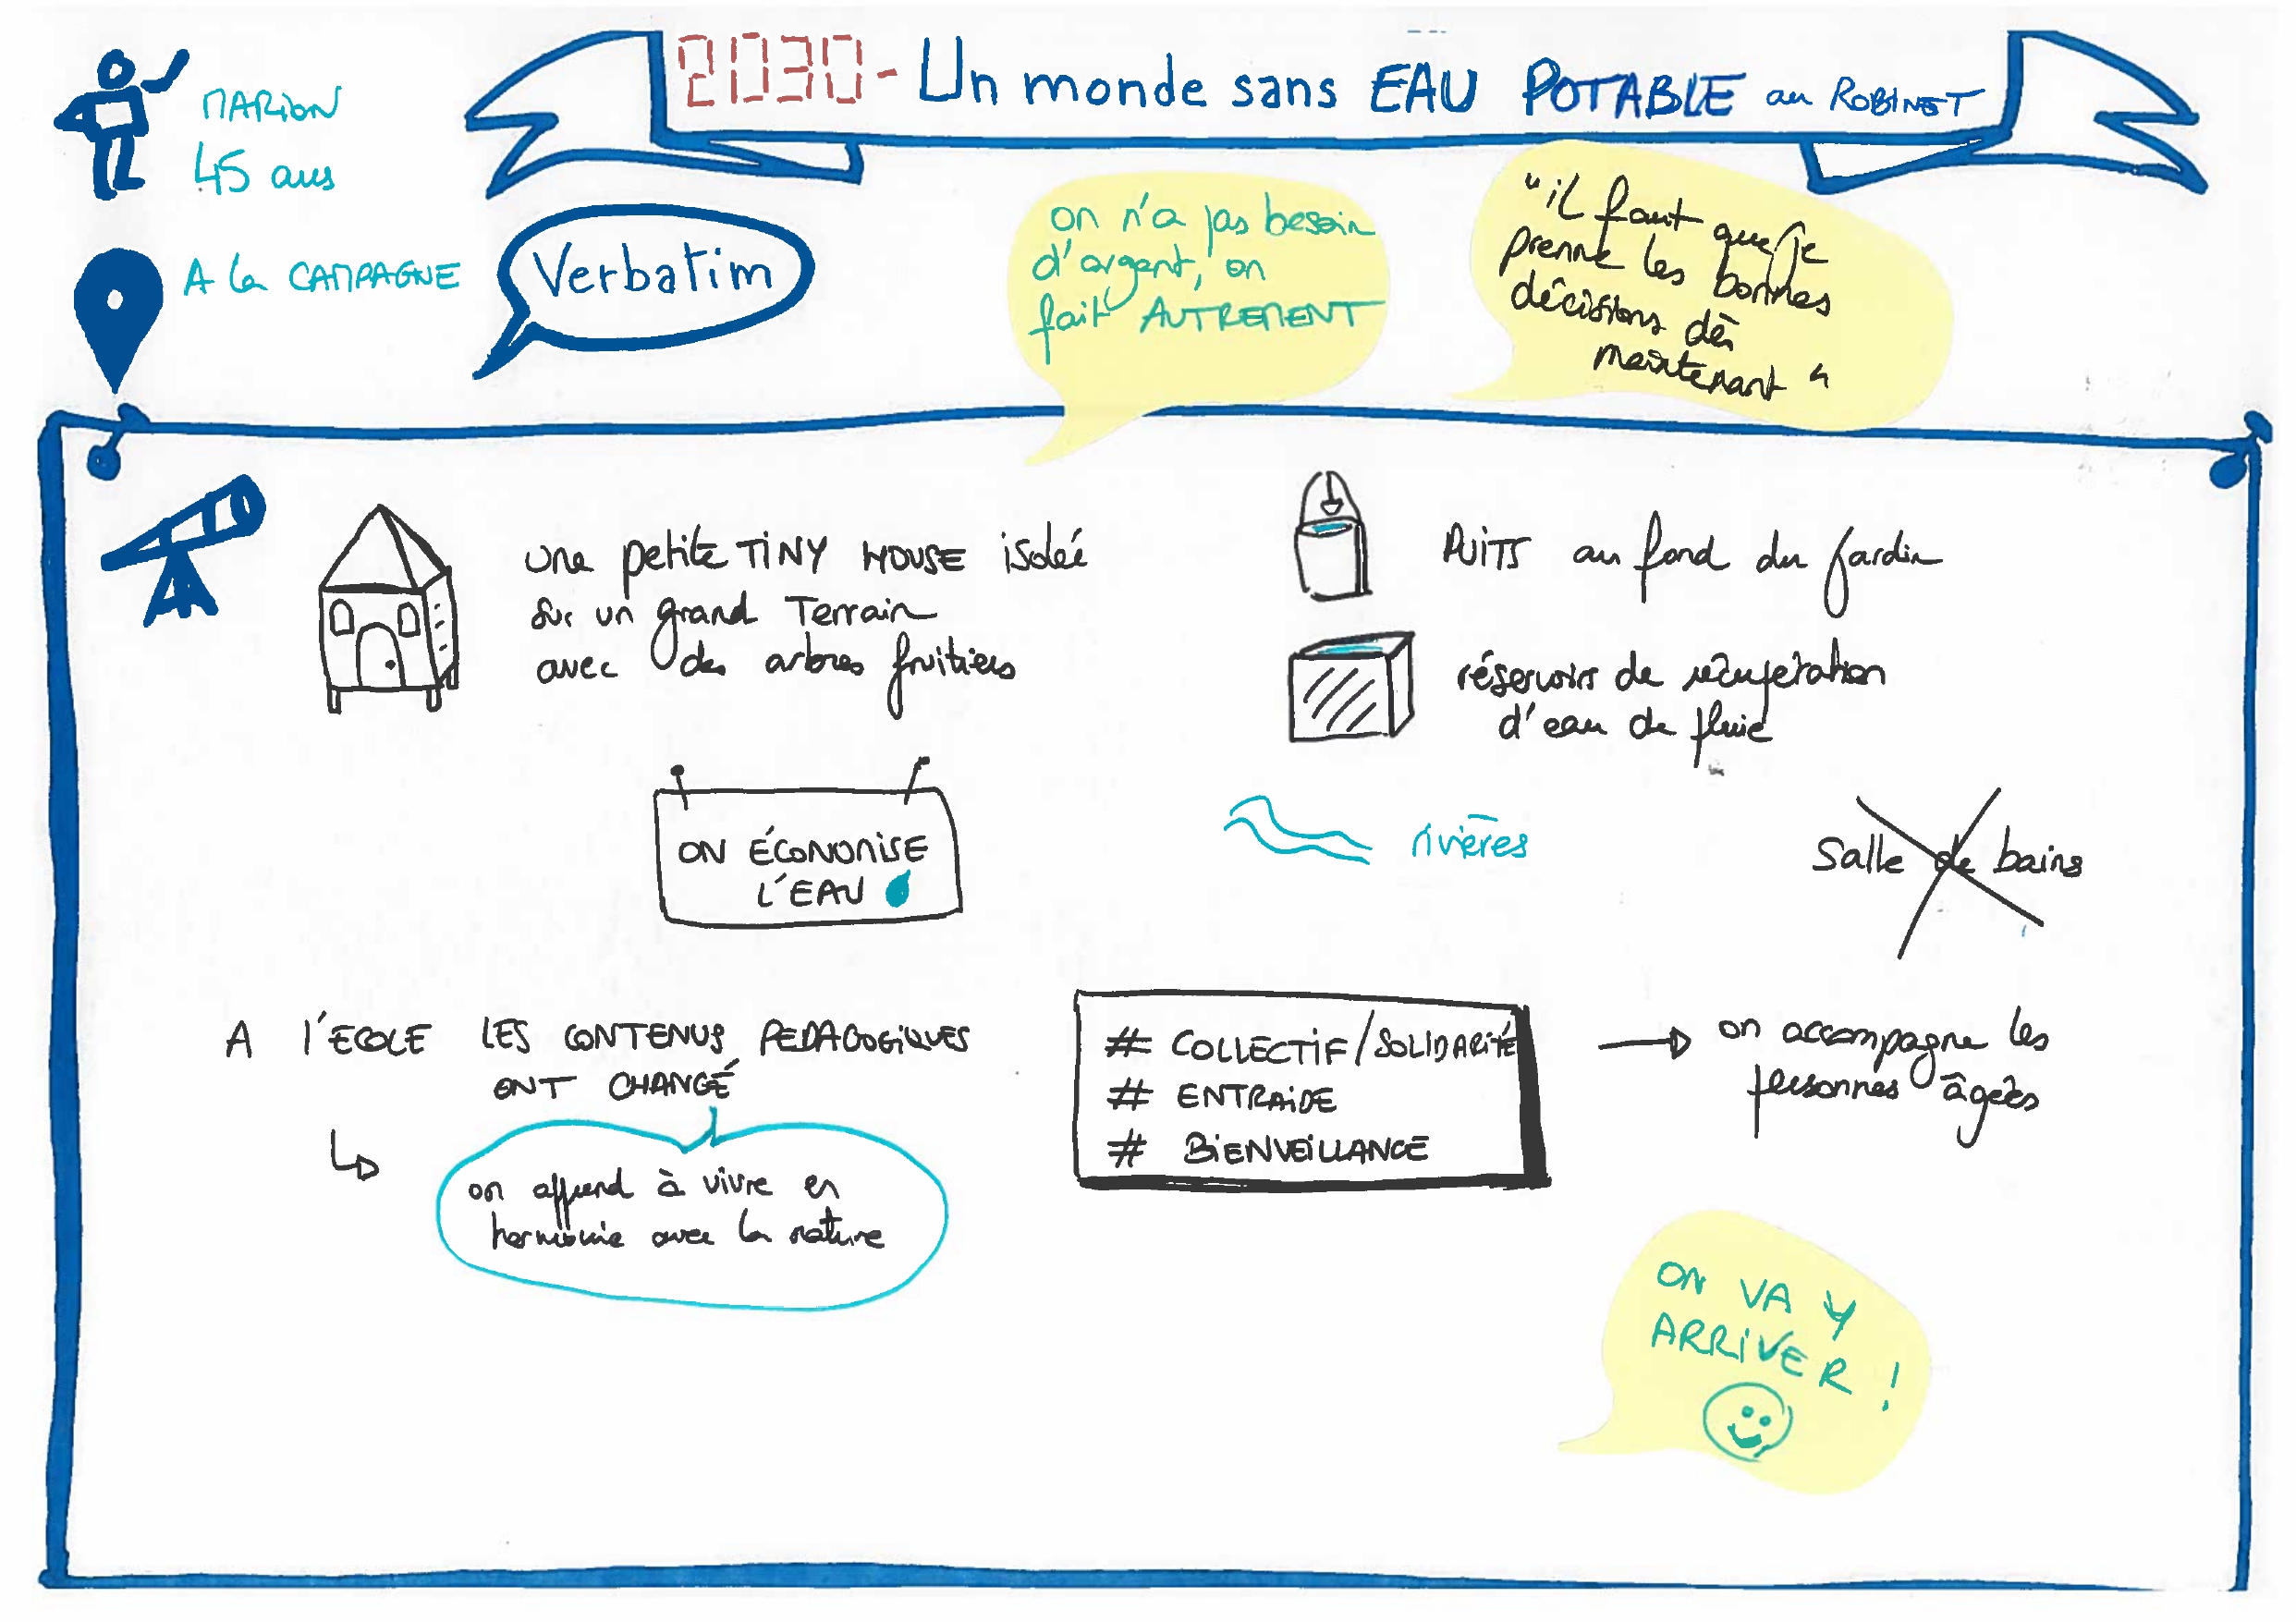 2030 - Un monde sans EAU POTABLE au ROBINET
MARION
45 ans
A la CAMPAGNE
Verbatim
on n'a pas besoin
d'argent, on
fait AUTREMENT
"il faut que je
prenne les bonnes
décisions dès
maintenant"
une petite TINY HOUSE isolée
sur un grand Terrain
avec des arbres fruitiers
PUITS au fond du jardin
réservoirs de récupération
d'eau de pluie
ON ÉCONOMISE
L'EAU
rivières
Salle de bains
A l'ECOLE LES CONTENUS PEDAGOGIQUES
ONT CHANGÉ
on apprend à vivre en
harmonie avec la nature
# COLLECTIF/SOLIDARITÉ
# ENTRAIDE
# BIENVEILLANCE
on accompagne les
personnes âgées
ON VA Y
ARRIVER !